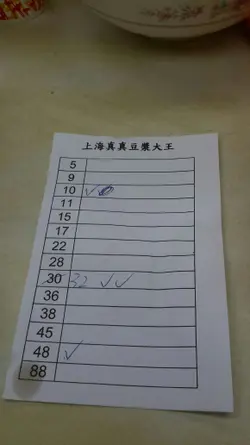 上海真真豆漿大王
5
9
10 ✓
11
15
17
22
28
30 32 ✓✓
36
38
45
48 ✓
88